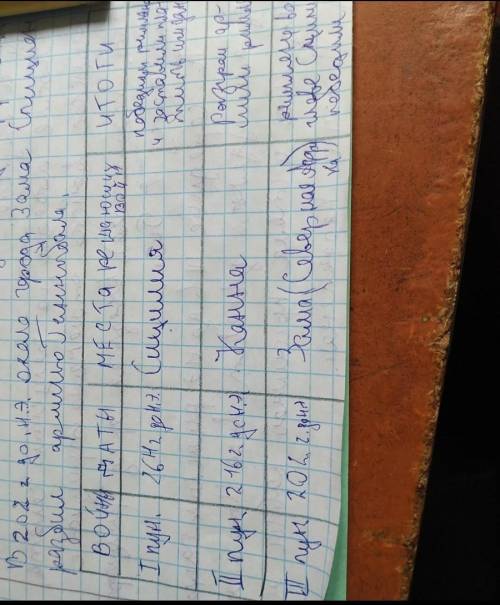 В 202 г до.н.э. около города Зама Сципион
разбил армию Ганнибала.
ВОЙНЫ ДАТЫ МЕСТА решающих войн ИТОГИ
I пун. 264 г. до н.э. Сицилия победили римляне
и заставили
II пун 216 г до н.э. Канны Разгром ар-
мии римл
III пун 202 г. до н.э Зама (Северная Афри
ка) римляне во
главе Сципи
победили